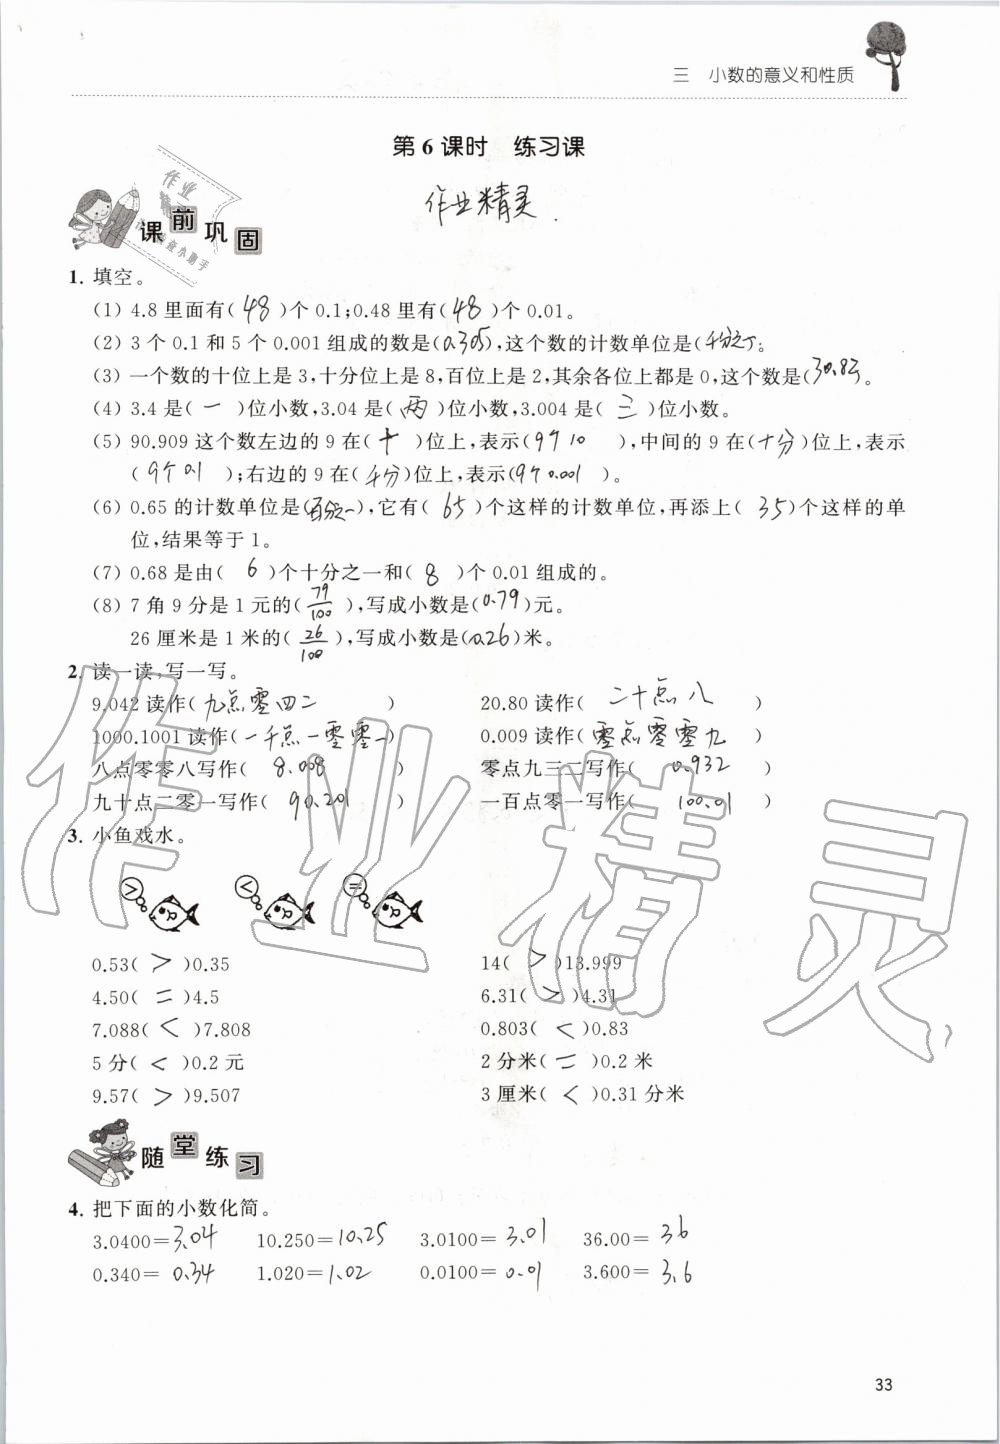 三 小数的意义和性质
第6课时 练习课
作业精灵
课前巩固
1. 填空。
(1) 4.8里面有( 48 )个0.1;0.48里有( 48 )个0.01。
(2) 3个0.1和5个0.001组成的数是(0.305),这个数的计数单位是(千分之一)。
(3) 一个数的十位上是3,十分位上是8,百位上是2,其余各位上都是0,这个数是(30.83)。
(4) 3.4是( 一 )位小数,3.04是( 两 )位小数,3.004是( 三 )位小数。
(5) 90.909这个数左边的9在( 十 )位上,表示(9个10 ),中间的9在(十分)位上,表示
( 9个0.1 );右边的9在(千分)位上,表示(9个0.001 )。
(6) 0.65的计数单位是(百分之一),它有( 65 )个这样的计数单位,再添上( 35 )个这样的单
位,结果等于1。
(7) 0.68是由( 6 )个十分之一和( 8 )个0.01组成的。
(8) 7角9分是1元的( 79/100 ),写成小数是(0.79)元。
26厘米是1米的( 26/100 ),写成小数是(0.26)米。
2. 读一读,写一写。
9.042读作(九点零四二 ) 20.80读作( 二十点八 )
1000.1001读作(一千点一零零一) 0.009读作(零点零零九 )
八点零零八写作( 8.008 ) 零点九三二写作( 0.932 )
九十点二零一写作( 90.201 ) 一百点零一写作( 100.01 )
3. 小鱼戏水。
> < =
0.53( > )0.35 14( > )13.999
4.50( = )4.5 6.31( > )4.31
7.088( < )7.808 0.803( < )0.83
5分( < )0.2元 2分米( = )0.2米
9.57( > )9.507 3厘米( < )0.31分米
随堂练习
4. 把下面的小数化简。
3.0400=3.04 10.250=10.25 3.0100=3.01 36.00=36
0.340=0.34 1.020=1.02 0.0100=0.01 3.600=3.6
33
作业精灵